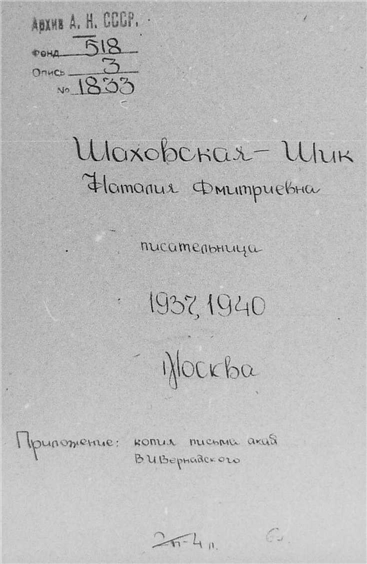 Архив А. Н. СССР.
Фонд 518
Опись 3
№ 1833
Шаховская - Шик
Наталия Дмитриевна
писательница
1937, 1940
Москва
Приложение: копия письма акад
В И Вернадского
4 л.